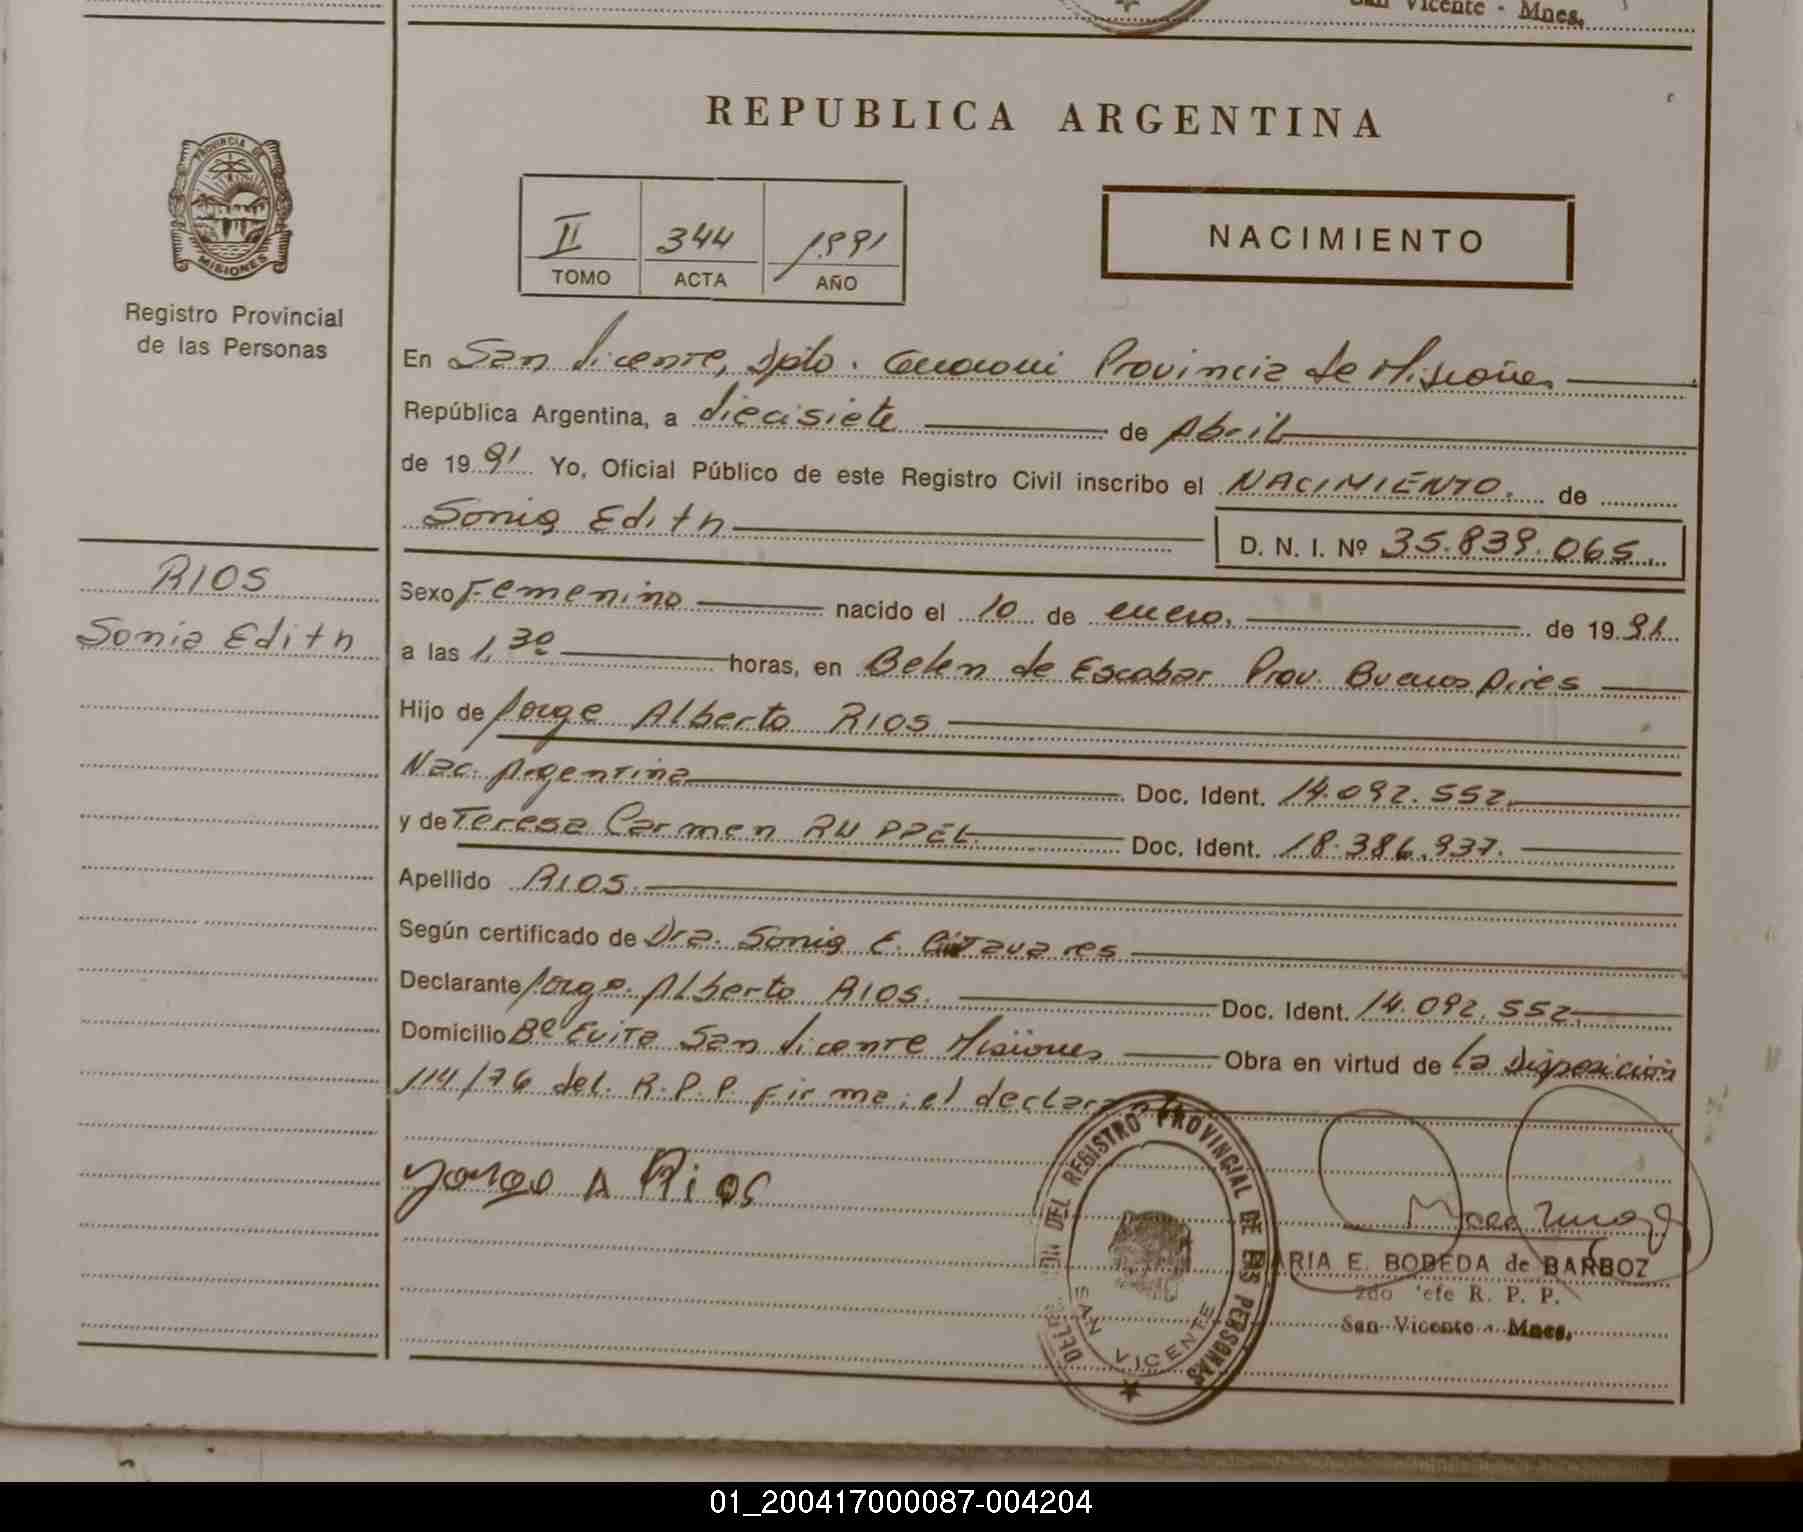 San Vicente - Mnes.
REPUBLICA ARGENTINA
PROVINCIA DE
MISIONES
Registro Provincial
de las Personas
II 344 1991
TOMO ACTA AÑO
NACIMIENTO
En San Vicente, Dpto. Guarani Provincia de Misiones
República Argentina, a diecisiete de Abril
de 1991 Yo, Oficial Público de este Registro Civil inscribo el NACIMIENTO. de
Sonia Edith
D. N. I. Nº 35.839.065
RIOS
Sonia Edith
Sexo Femenino nacido el 10 de enero. de 1991
a las 1,30 horas, en Belen de Escobar Prov. Buenos Aires
Hijo de Jorge Alberto RIOS
Nac. Argentina Doc. Ident. 14.092.552.
y de Teresa Carmen RUPPEL Doc. Ident. 18.386.937.
Apellido RIOS.
Según certificado de Dra. Sonia E.
Declarante Jorge Alberto RIOS. Doc. Ident. 14.092.552
Domicilio Bº Evita San Vicente Misiones Obra en virtud de la Disposición
114/76 del R.P.P. firma: el declarante
Jorge A Rios
DELEGACION DEL REGISTRO PROVINCIAL DE LAS PERSONAS
SAN VICENTE
MARIA E. BOBEDA de BARBOZ
2do Jefe R. P. P.
San Vicente - Mnes.
01_200417000087-004204